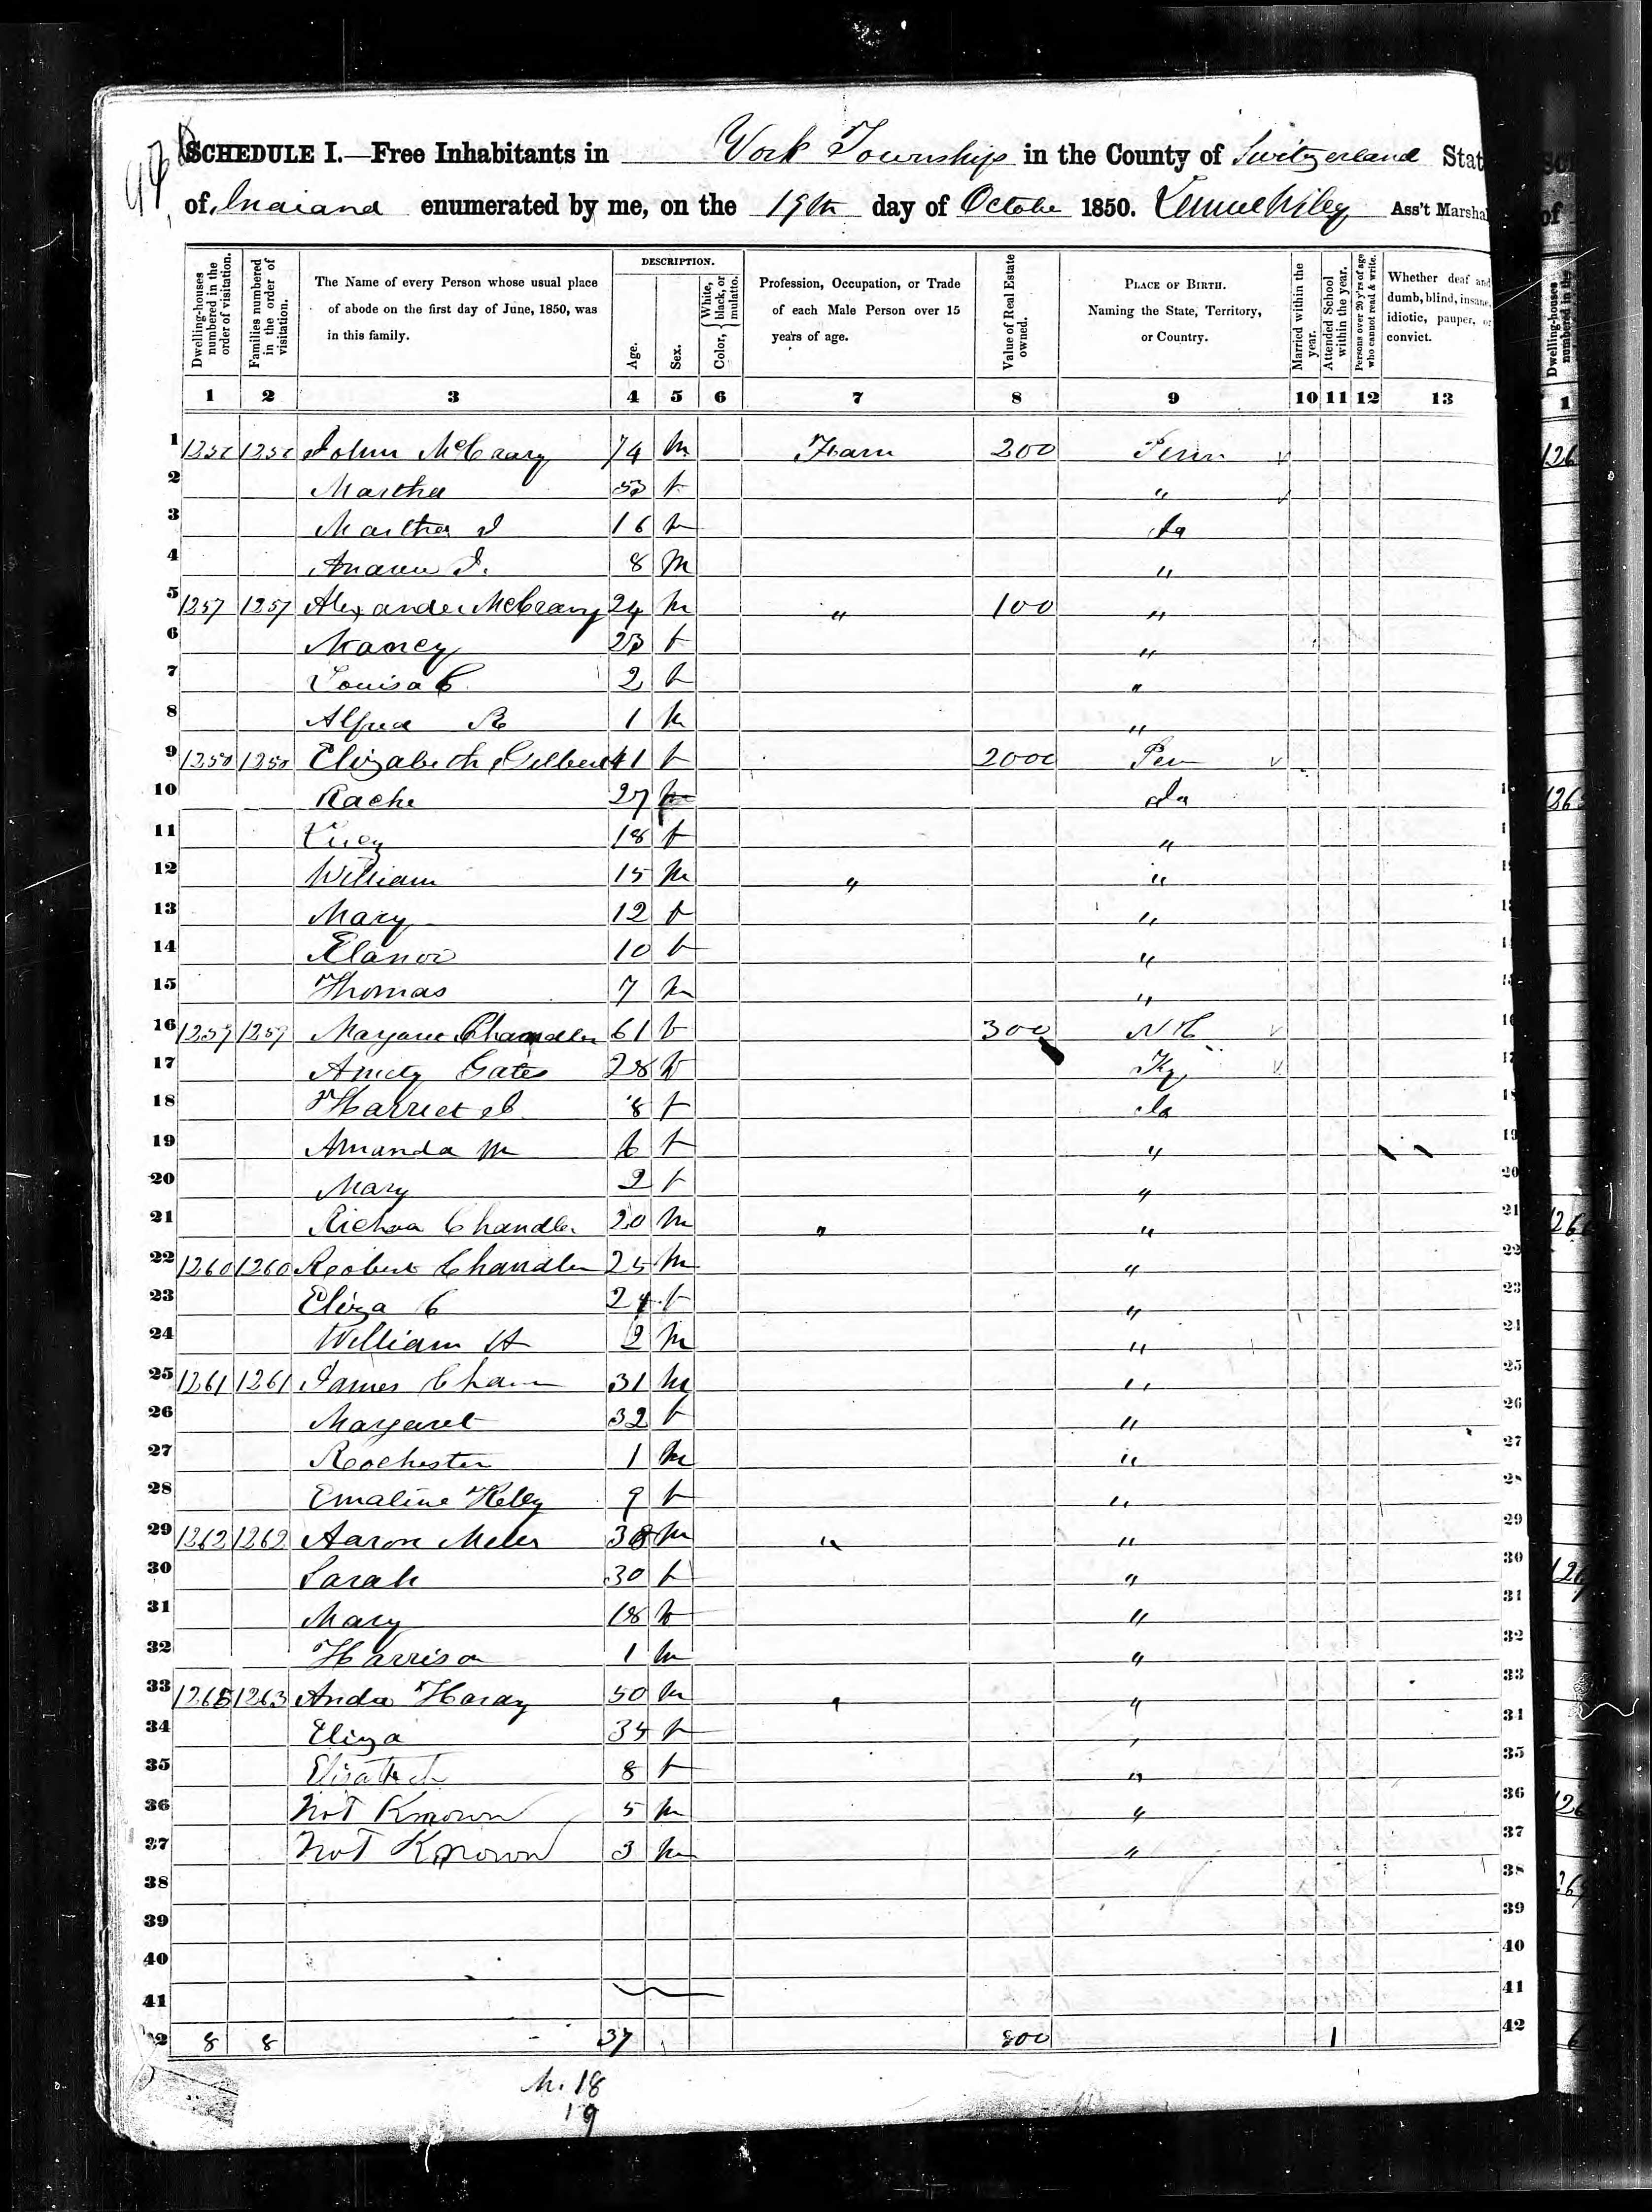 SCHEDULE I.—Free Inhabitants in York Township in the County of Switzerland Stat
of Indiana enumerated by me, on the 19th day of Octobe 1850. Lemuel Wiley Ass't Marshal
Dwelling-houses numbered in the order of visitation.
Families numbered in the order of visitation.
The Name of every Person whose usual place of abode on the first day of June, 1850, was in this family.
DESCRIPTION.
Age.
Sex.
Color, { White, black, or mulatto.
Profession, Occupation, or Trade of each Male Person over 15 years of age.
Value of Real Estate owned.
PLACE OF BIRTH. Naming the State, Territory, or Country.
Married within the year.
Attended School within the year.
Persons over 20 y'rs of age who cannot read & write.
Whether deaf and dumb, blind, insane, idiotic, pauper, or convict.
1 2 3 4 5 6 7 8 9 10 11 12 13
1 John McCrary 74 m Farm 200 Penn
2 Martha f "
3 Martha J 16 Ia
4 8 m "
5 1257 1257 Alexander McCrary 24 m " 100 "
6 Nancy 23 f "
7 Louisa C 2 f "
8 Alfred R 1 m "
9 1258 1258 Elizabeth Gilbert 41 f 2000 Pen
10 Rache 27 Ia
11 Lucy 18 f "
12 William 15 m " "
13 Mary 12 f "
14 Elanor 10 f "
15 Thomas 7 m "
16 1259 1259 Margaret Chandler 61 f 300 NC
17 Gates 28 f Ky
18 Harriet 8 f Ia
19 Amanda M 6 f "
20 Mary 2 f "
21 Richa Chandler 20 m " "
22 1260 1260 Robert Chandler 25 m "
23 Eliza C 24 f "
24 William H 2 m "
25 1261 1261 James Chan 31 m "
26 Margaret 32 f "
27 Rochester 1 m "
28 Emaline Kelly 9 f "
29 1262 1262 Aaron Meles 38 m " "
30 Sarah 30 f "
31 Mary 18 f "
32 Harrison 1 m "
33 1263 1263 Andr Hardy 50 m " "
34 Eliza 34 f "
35 Elizabeth 8 f "
36 Not Known 5 m "
37 Not Known 3 m "
38
39
40
41
42 8 8 37 800 1
M. 18
19